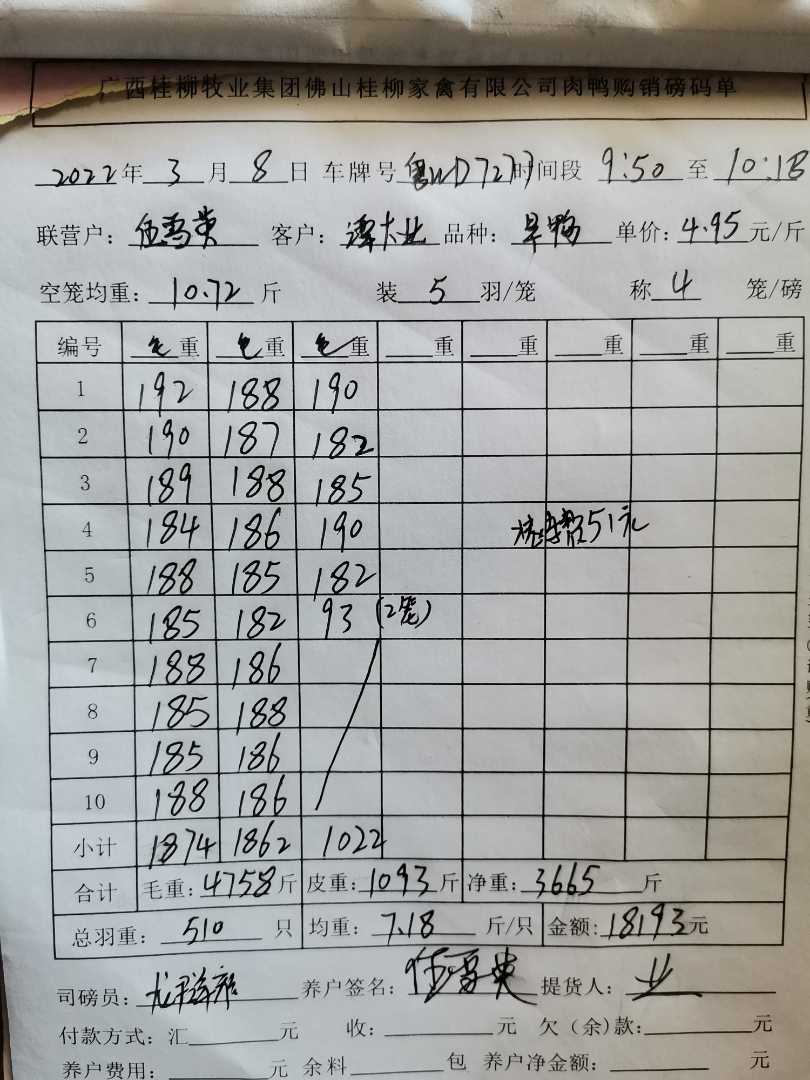 广西桂柳牧业集团佛山桂柳家禽有限公司肉鸭购销磅码单
2022年 3 月 8 日 车牌号 粤WD7277 时间段 9:50 至 10:18
联营户: 伍雪英 客户: 谭大业 品种: 旱鸭 单价: 4.95 元/斤
空笼均重: 10.72 斤 装 5 羽/笼 称 4 笼/磅
编号 毛重 毛重 毛重 重 重 重 重 重
1 192 188 190
2 190 187 182
3 189 188 185
4 184 186 190 51元
5 188 185 182
6 185 182 93 (2笼)
7 188 186
8 185 188
9 185 186
10 188 186
小计 1874 1862 1022
合计 毛重: 4758 斤 皮重: 1093 斤 净重: 3665 斤
总羽重: 510 只 均重: 7.18 斤/只 金额: 18193 元
司磅员: 养户签名: 伍雪英 提货人: 业
付款方式: 汇 元 收: 元 欠(余)款: 元
养户费用: 元 余料 包 养户净金额: 元